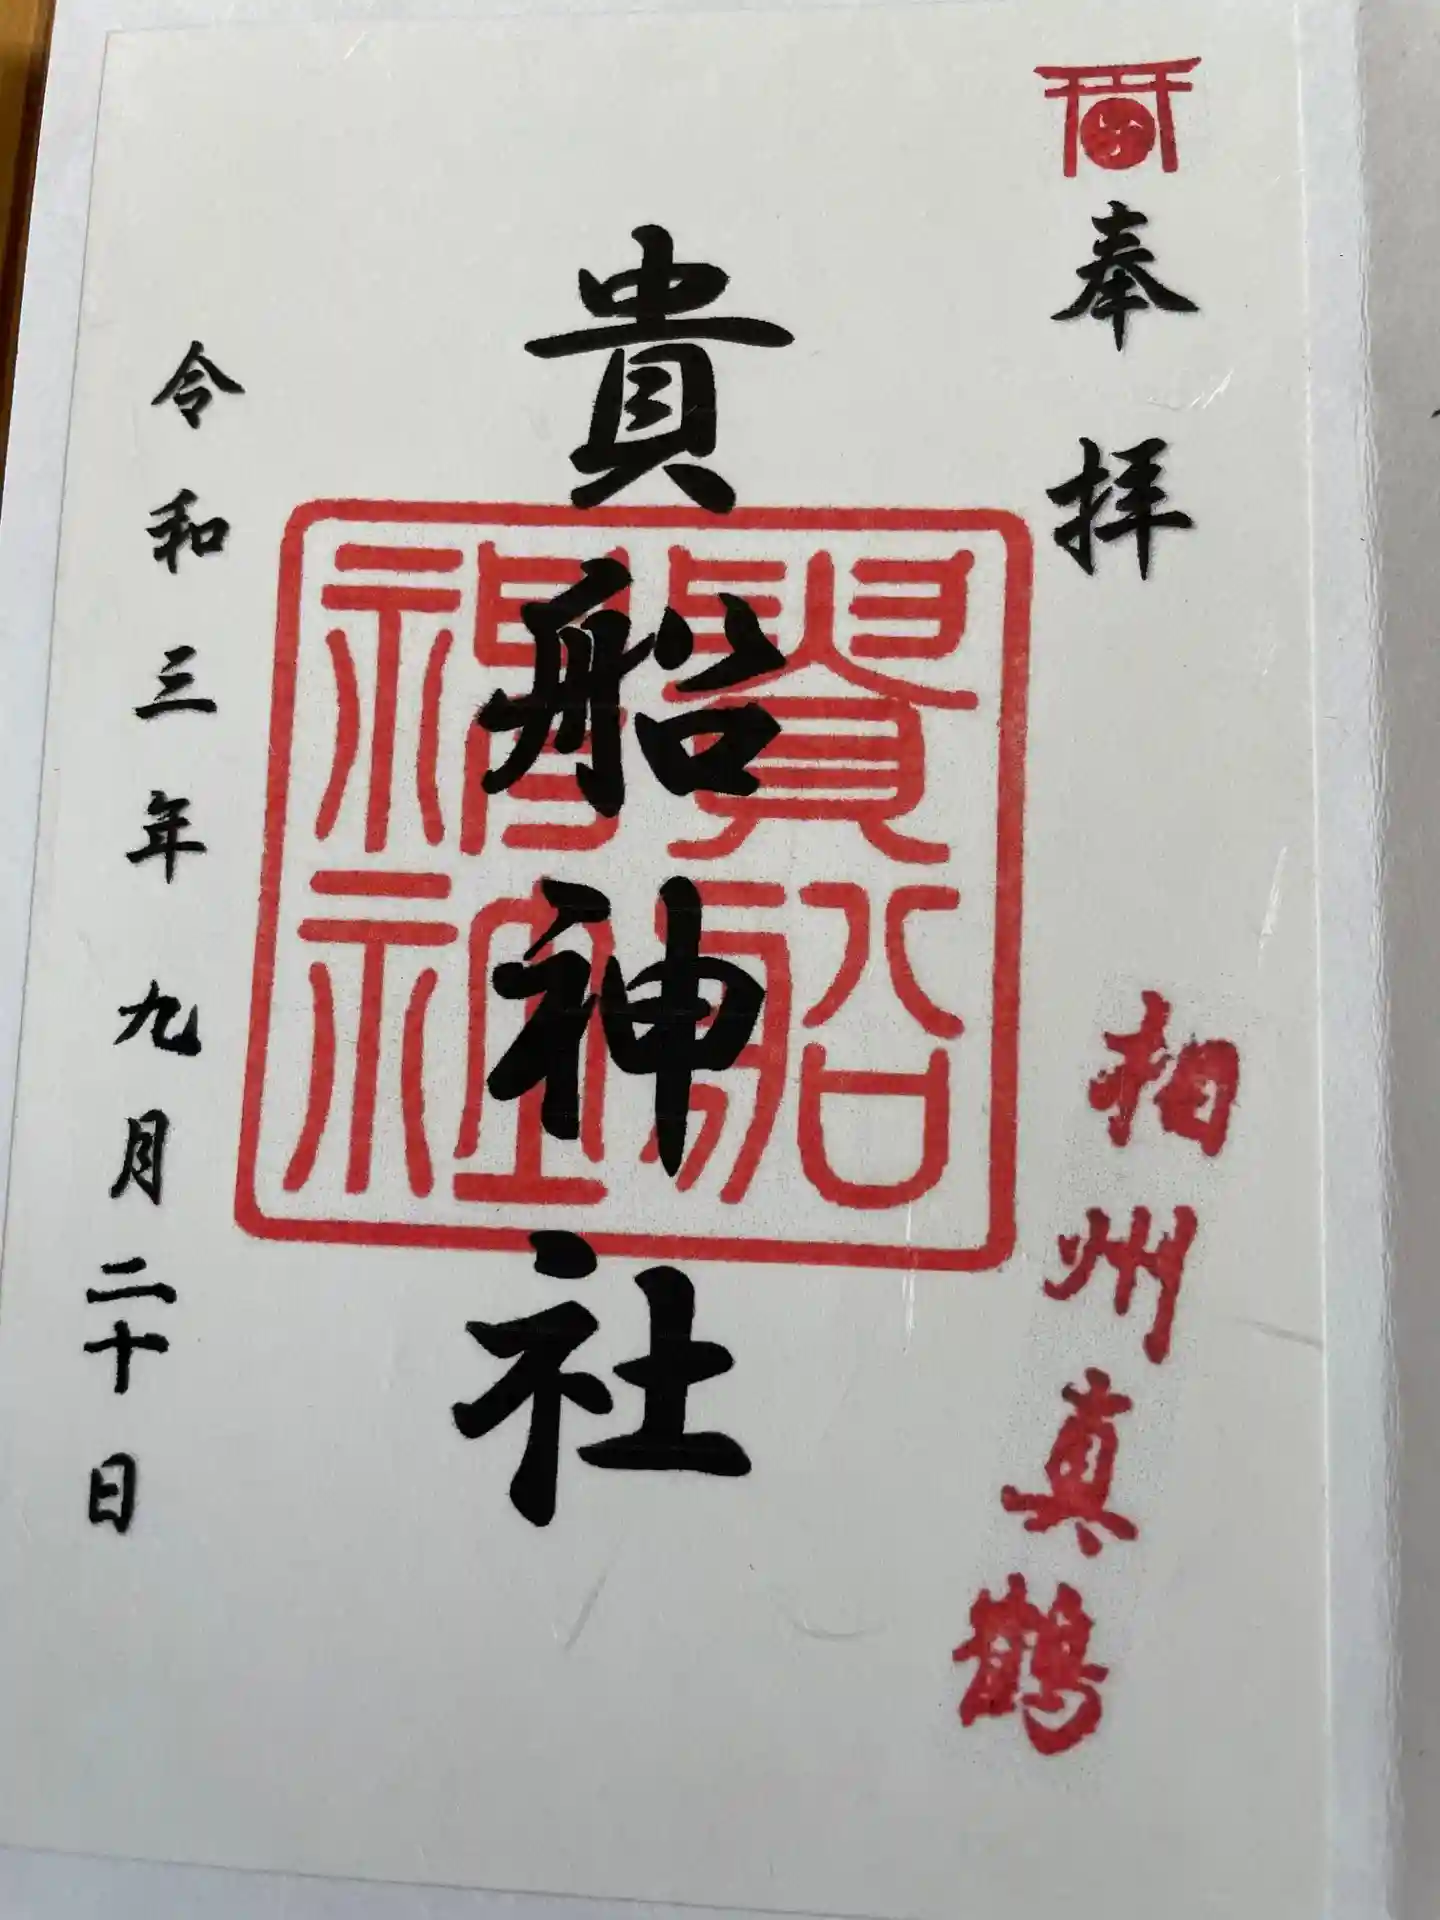 奉拝
相州真鶴
貴船神社
貴船神社
令和三年九月二十日